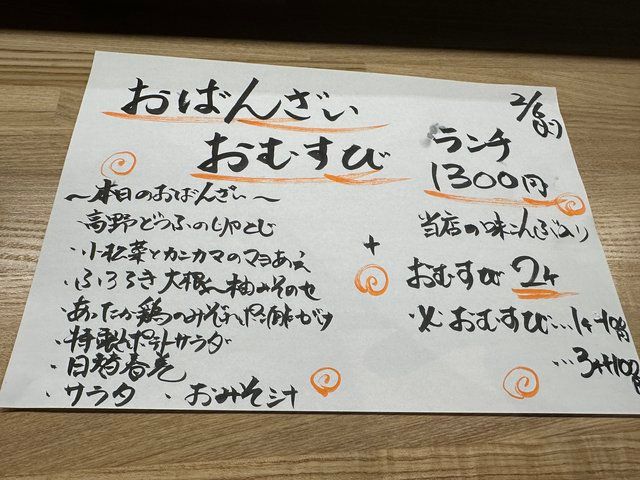 おばんざい
おむすび
2/6
ランチ
1300円
〜本日のおばんざい〜
高野どうふの
・小松菜とカニカマのマヨあえ
・ふろふき大根〜柚みそのせ
・あったか鶏のみぞれポン酢がけ
・特製ポテトサラダ
・日替春巻
・サラダ ・おみそ汁
+
当店の味こんぶ入り
おむすび 2ケ
おむすび…1ケ
…3ケ+100円